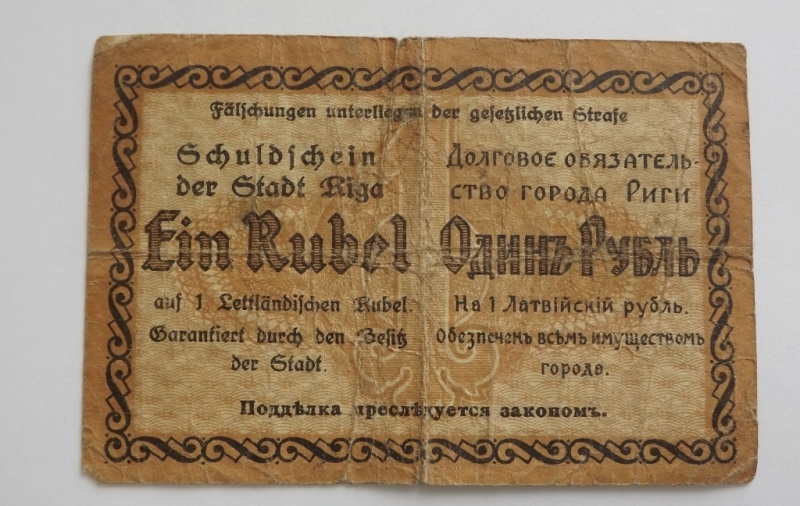 Fälschungen unterliegen der gesetzlichen Strafe
Schuldschein
der Stadt Riga
Ein Rubel
auf 1 Lettländischen Rubel.
Garantiert durch den Besitz
der Stadt.
Долговое обязатель-
ство города Риги
Одинъ Рубль
На 1 Латвійскій рубль.
Обезпеченъ всѣмъ имуществомъ
города.
Поддѣлка преслѣдуется закономъ.